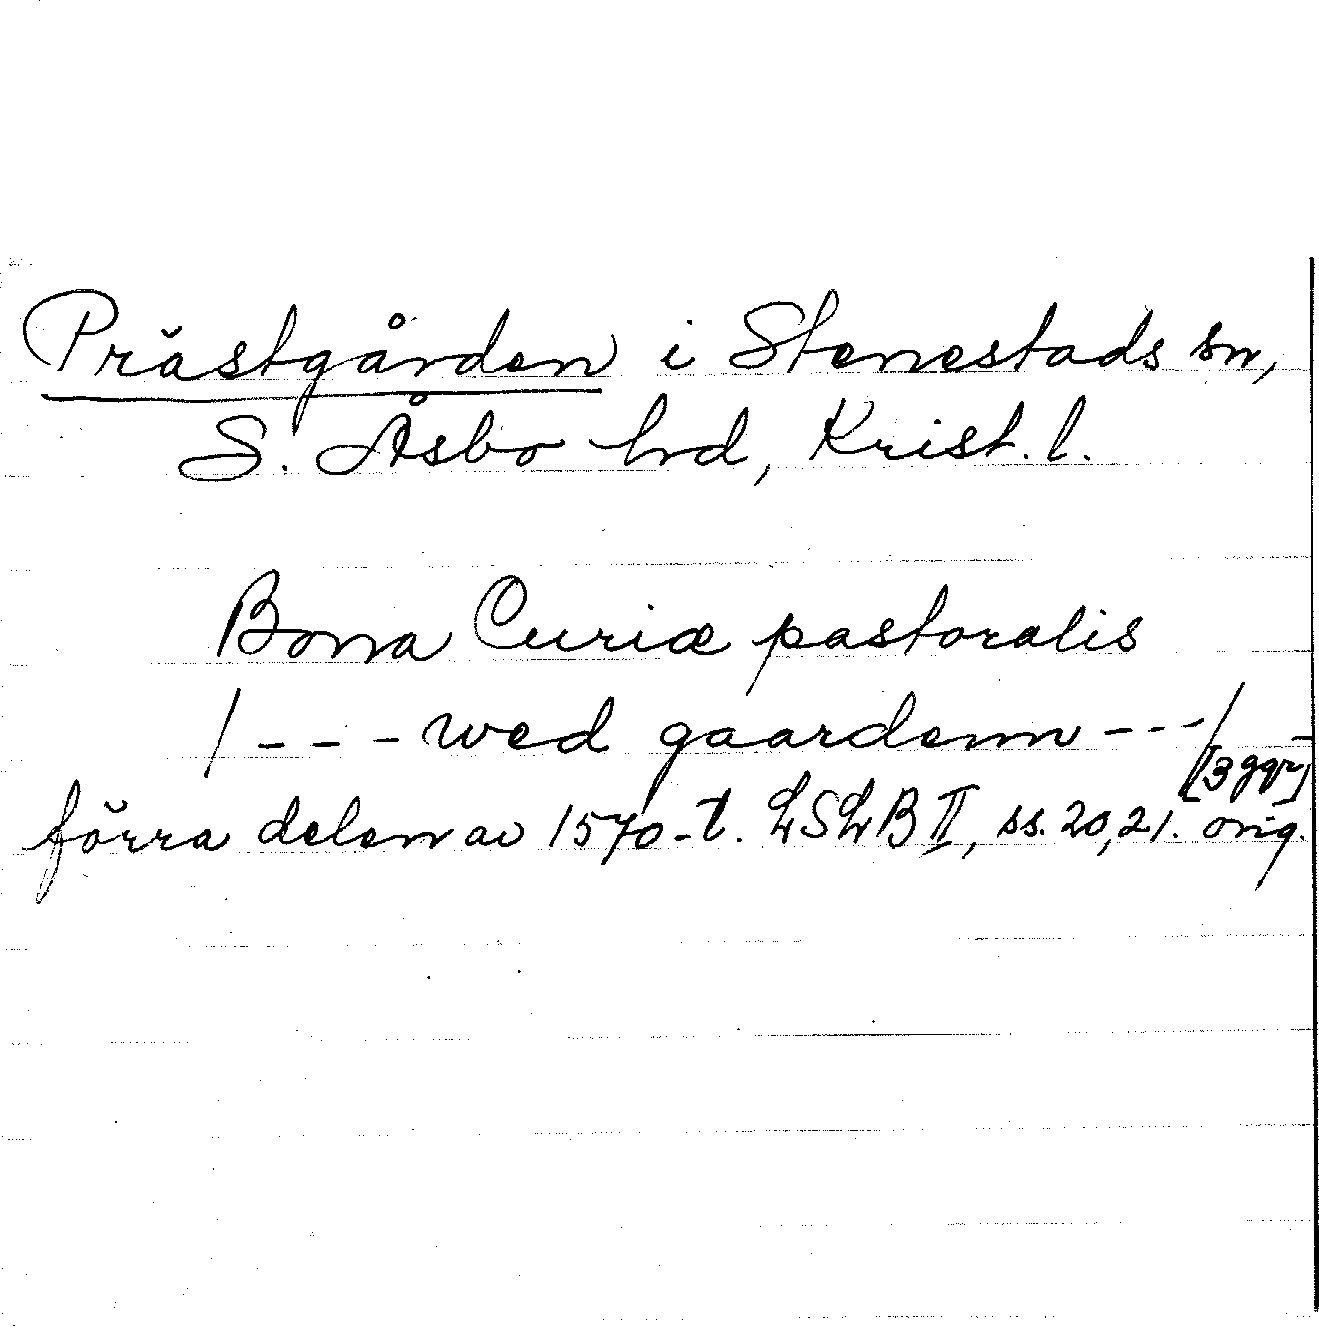 Prästgården i Stenestads sn,
S. Åsbo hd, Krist. l.
Bona Curiæ pastoralis
/ - - - wed gaardenn - - - /
[3 ggr]
förra delen av 1570-t. LSLB II, ss. 20, 21. orig.